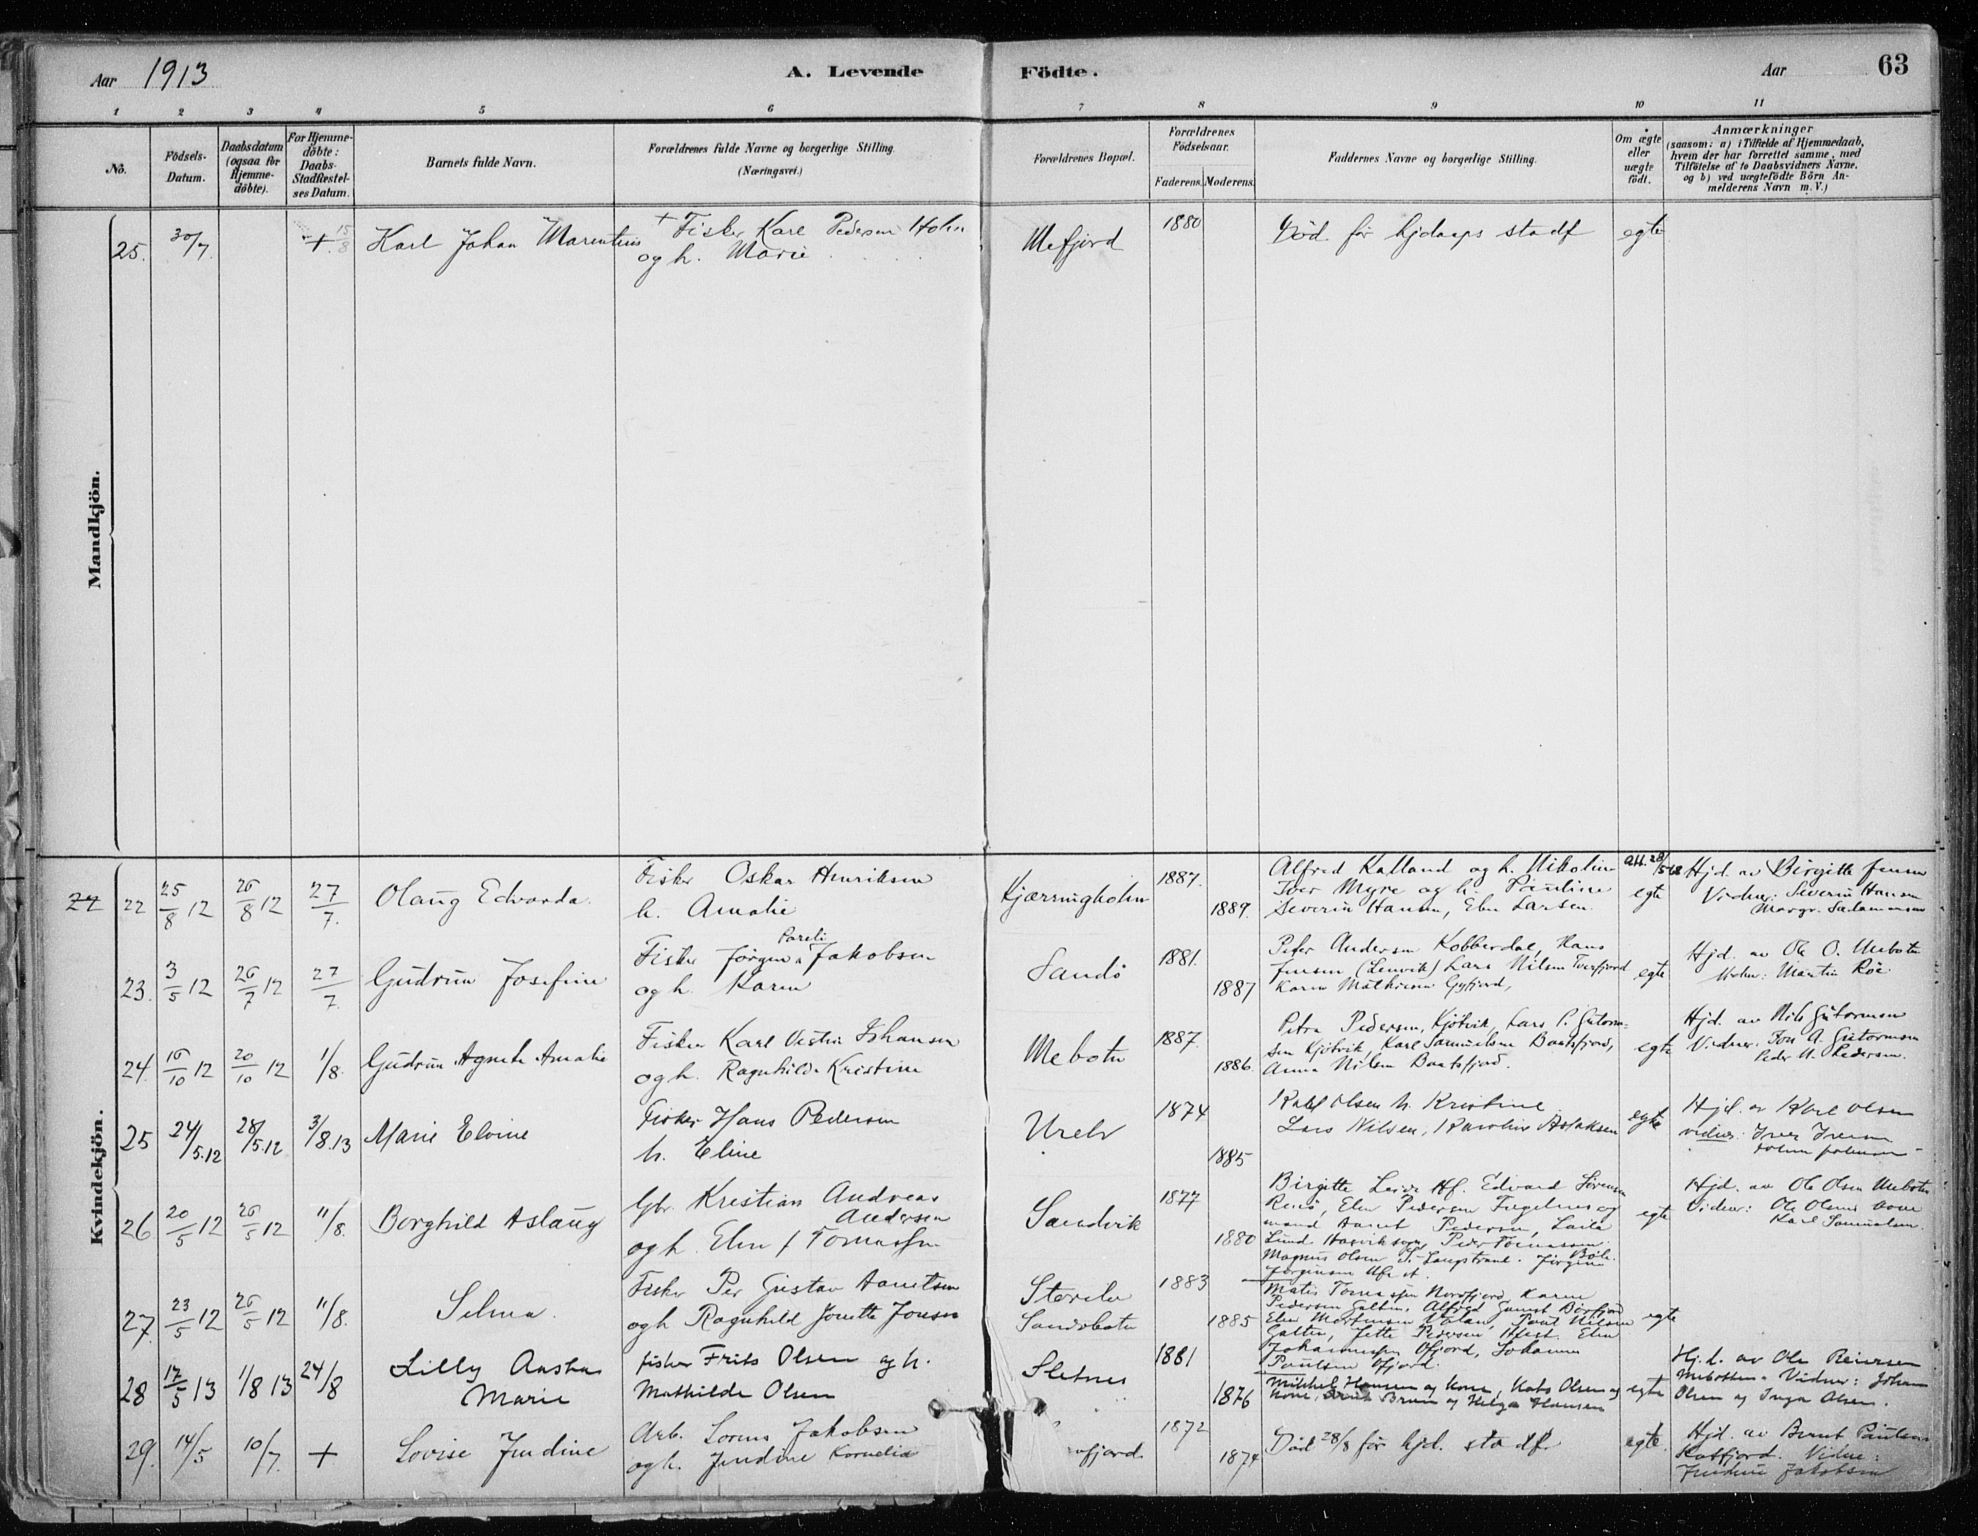 Aar 1913
A. Levende Födte.
Aar 63
1 2 3 4 5 6 7 8 9 10 11
No.
Födsels-
Datum.
Daabsdatum
(ogsaa for
Hjemme-
döbte).
For Hjemme-
döbte:
Daabs-
Stadfæstel-
ses Datum.
Barnets fulde Navn.
Forældrenes fulde Navne og borgerlige Stilling
(Næringsvei.)
Forældrenes Bopæl.
Forældrenes
Födselsaar.
Faderens. Moderens.
Faddernes Navne og borgerlige Stilling.
Om ægte
eller
uægte
födt.
Anmærkninger
(saasom: a) i Tilfælde af Hjemmedaab,
hvem der har forrettet samme, med
Tilföielse af to Daabsvidners Navne,
og b) ved uægtefödte Börn An-
melderens Navn m. V.)
Mandkjön.
25. 30/7. + 15/8 Karl Johan Marentius
+ Fisker Karl Pedersen Holm
og h. Marie
Mefjord 1880
Död før hjdaaps stadf egte
Kvindekjön.
22 22 25/8 12 26/8 12 27/7. Olaug Edvarda.
Fisker Oskar Henriksen
h. Amalie
Kjærringholm 1887. 1889.
Alfred Kalland og h. Nikoline
Iver Myre og h. Pauline
Severin Hansen, Elen Larsen.
egte
Hjd. av Birgitte Jensen
Vidner: Severin Hansen
23. 3/5 12 26/7 12 27/7. Gudrun Josefine
Fisker Jørgen Jakobsen
og h. Karen
Sandö 1881. 1887
Peder Andersen Kobberdal, Hans
Jensen (Lenvik) Lars Nilsen Tverfjord
Karen Mathisen Gyfjord,
egte
Hjd. av Ole O. Mebotn
Vidn: Martin Röe
24. 16/10 12 20/10 12 1/8. Gudrun Agnete Amalie
Fisker Karl Johansen
og h. Ragnhilda Kristine
Mebotn 1887. 1886.
Petra Pedersen, Kjötvik, Lars P. Gutorm-
sen Kjötvik, Karl Samuelsen Baatsfjord,
Anna Nilsen Baatsfjord.
egte
Hjd. av Nils Gutormsen
Vidner: A. Gutormsen
Peder N. Pedersen.
25 24/5.12 28/5.12 3/8.13 Marie Elvine
Fisker Hans Pedersen
h. Eline
1874 1885
Karl Olsen h. Kristine
Lars Nilsen, Karoline Aslaksen
egte
Hjd. av Karl Olsen
vidner: Iver Iversen
26 20/5 12 26/5 12 11/8. Borghild Aslaug
Gbr. Kristian Andreas
Andersen
og h. Elen f Tomassen
Sandvik 1877 1880
Birgitte Edvard Sörensen
Reinö, Elen Pedersen Fuglenes og
mand Pedersen, Laila
Lund Hasvikson, Peder Tomassen
Magnus Olsen Langstrand. Jörgine
Jørgensen
egte
Hjd. av Ole Olsen Mebotn
Vidner: Ole Olsens kone
Karl Samuelsen.
27. 23/5 12 26/5 12 11/8. Selma.
Fisker Per Gustav
og h Ragnhild Jonette Jonsen
Storelv
Sandobotn 1883 1885
Tomassen Nordfjord, Karen
Pedersen Galten, Alfred Börfjord
Elen Mortensen Paul Nilsen
Galten, Jette Pedersen Elen
Johannessen Ofjord, Johanne
Paulsen Ofjord.
egte
28 17/5 13 1/8 13 24/8 Lilly Aasta
Marie
fisker Frits Olsen og h.
Mathilde Olsen
Sletnes 1881 1876
Mikkel Hansen og kone, Mats Olsen og
kone, Bruun og Helga Hansen
egte
Hj.d. av Ole Reiersen
Mebotten. Vidner: Johan
Olsen og Inga Olsen.
29. 14/5 10/7. + Lovise Jendine
Arb. Sorens Jakobsen
og h. Jendine Kornelia
fjord. 1872 1874
Död 28/8 før hjd. stadf.
egte.
Hjd. av Bernt Paulsen
Vidne:
Jendine Jakobsen